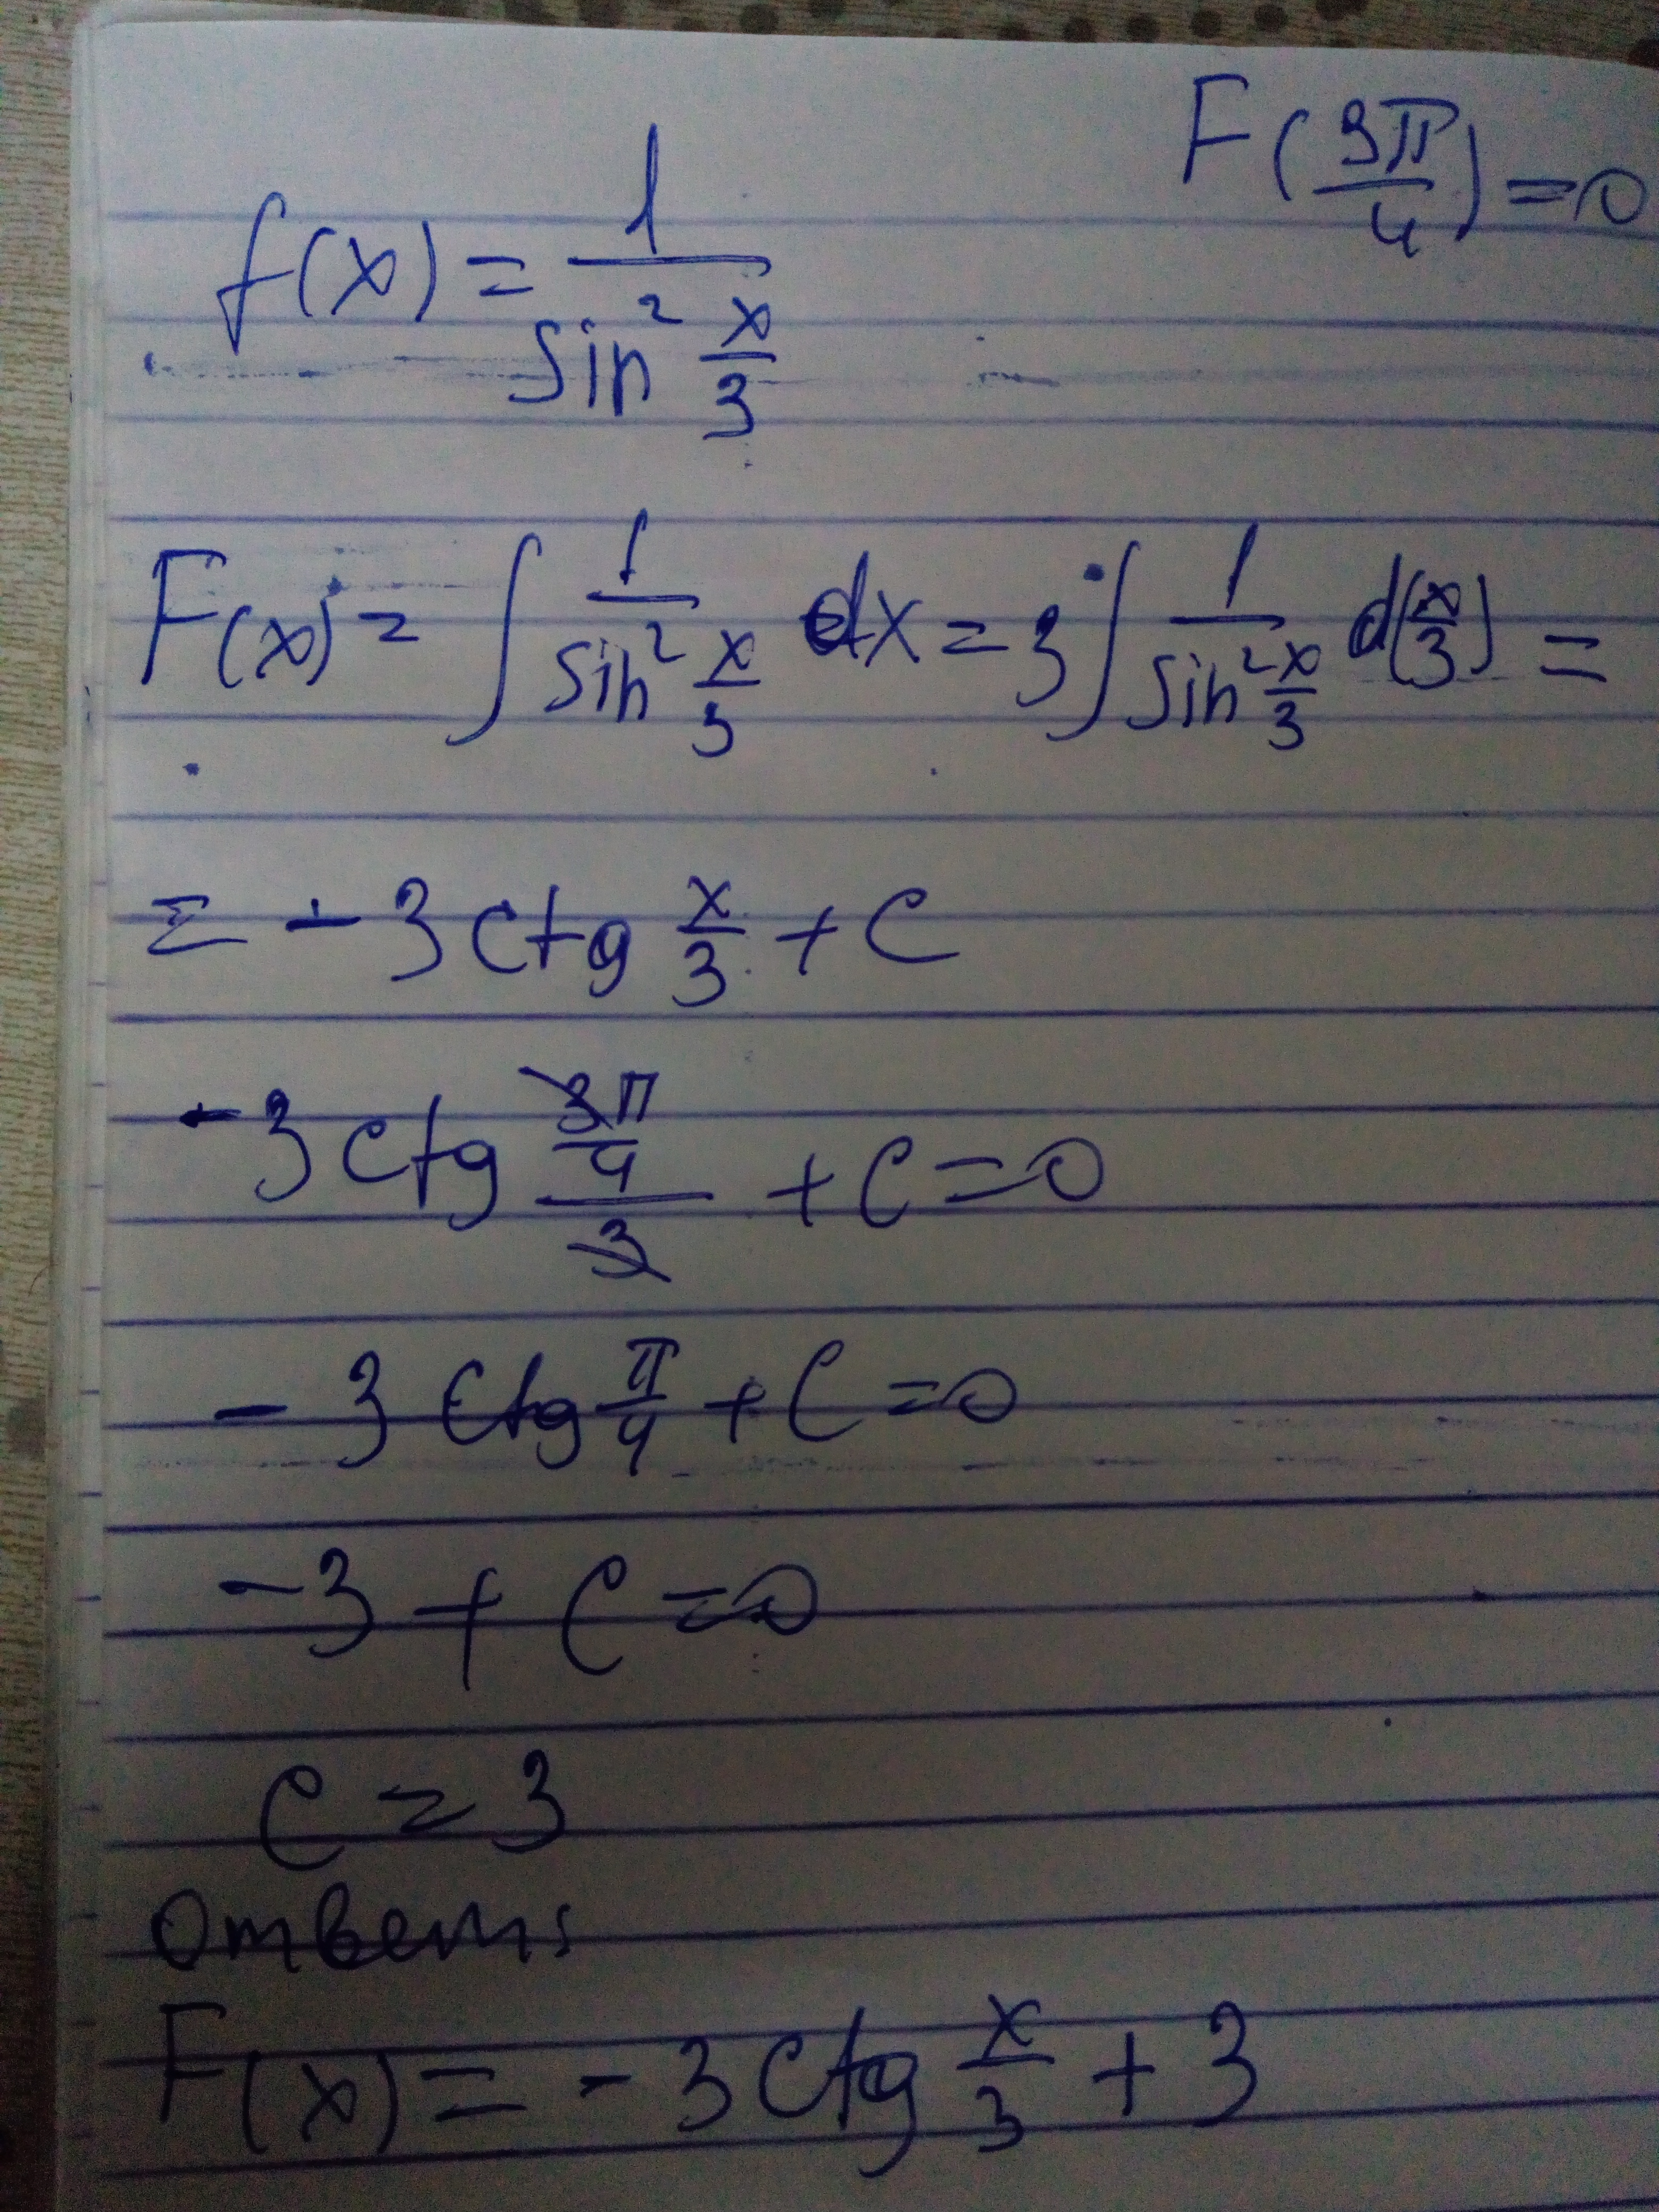 F(3π/4)=0
f(x)=1/sin² x/3
F(x)=∫1/sin² x/3 dx=3∫1/sin² x/3 d(x/3)=
=-3ctg x/3+C
-3ctg (3π/4)/3+C=0
-3ctg π/4+C=0
-3+C=0
C=3
Ответ:
F(x)=-3ctg x/3+3